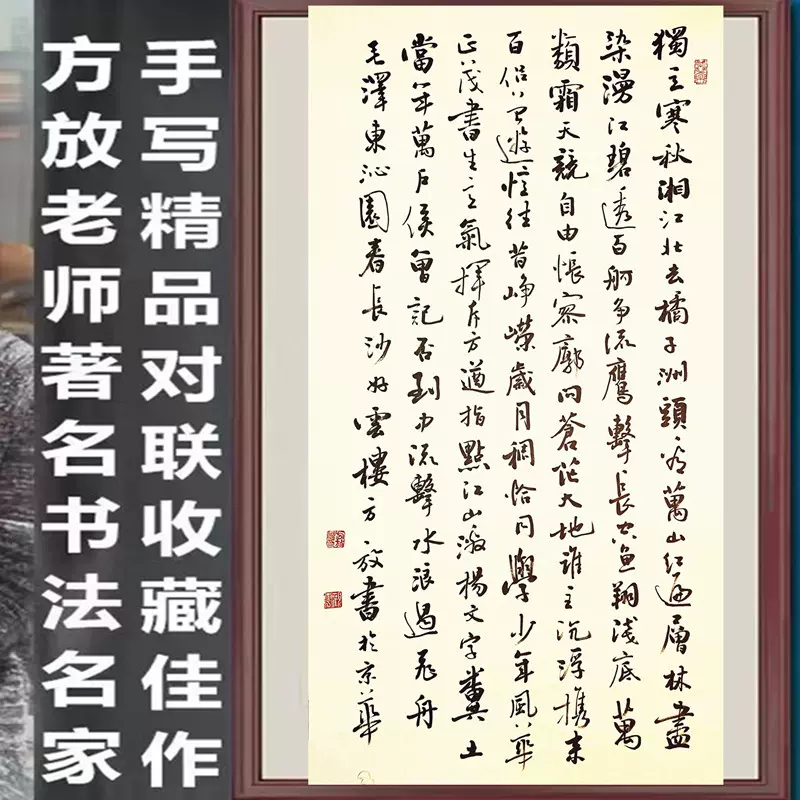 手写精品对联收藏佳作
方放老师著名书法名家
獨立寒秋湘江北去橘子洲頭看萬山红遍層林盡
染漫江碧透百舸争流鷹擊長空魚翔淺底萬
類霜天競自由悵寥廓问蒼茫大地誰主沉浮携来
百侣曾遊忆往昔峥嶸歲月稠恰同學少年風華
正茂書生意氣揮斥方遒指點江山激揚文字糞土
當年萬户侯曾記否到中流擊水浪遏飛舟
毛澤東沁園春長沙好雲樓方放書於京華